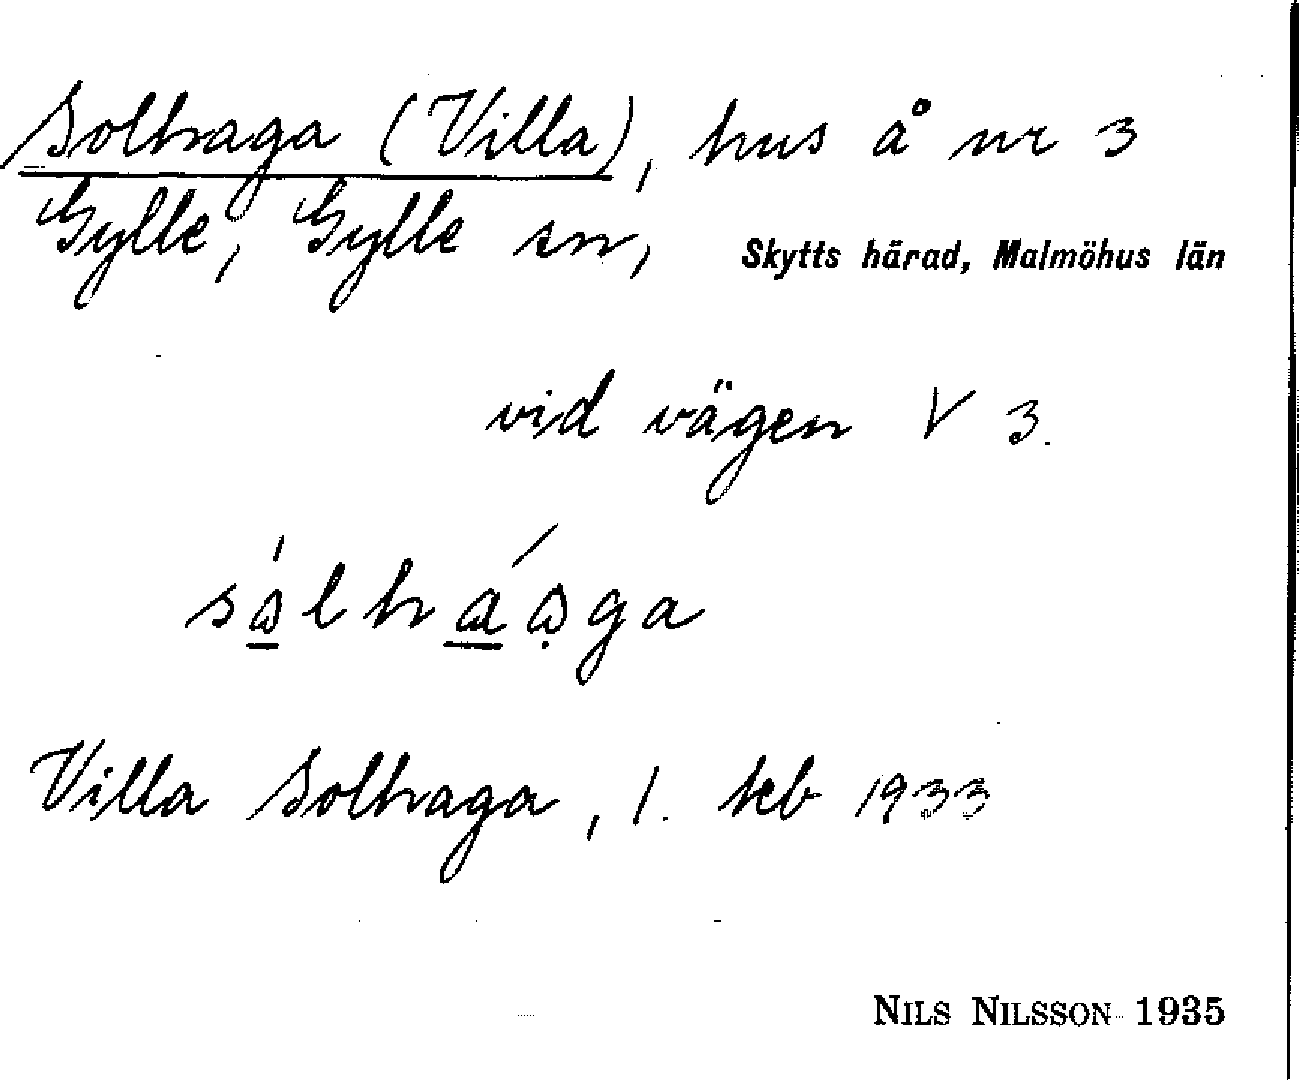 Solhaga (Villa), hus å nr 3
Gylle, Gylle sn, Skytts härad, Malmöhus län
vid vägen V 3.
Villa Solhaga, 1. feb 1933
NILS NILSSON 1935